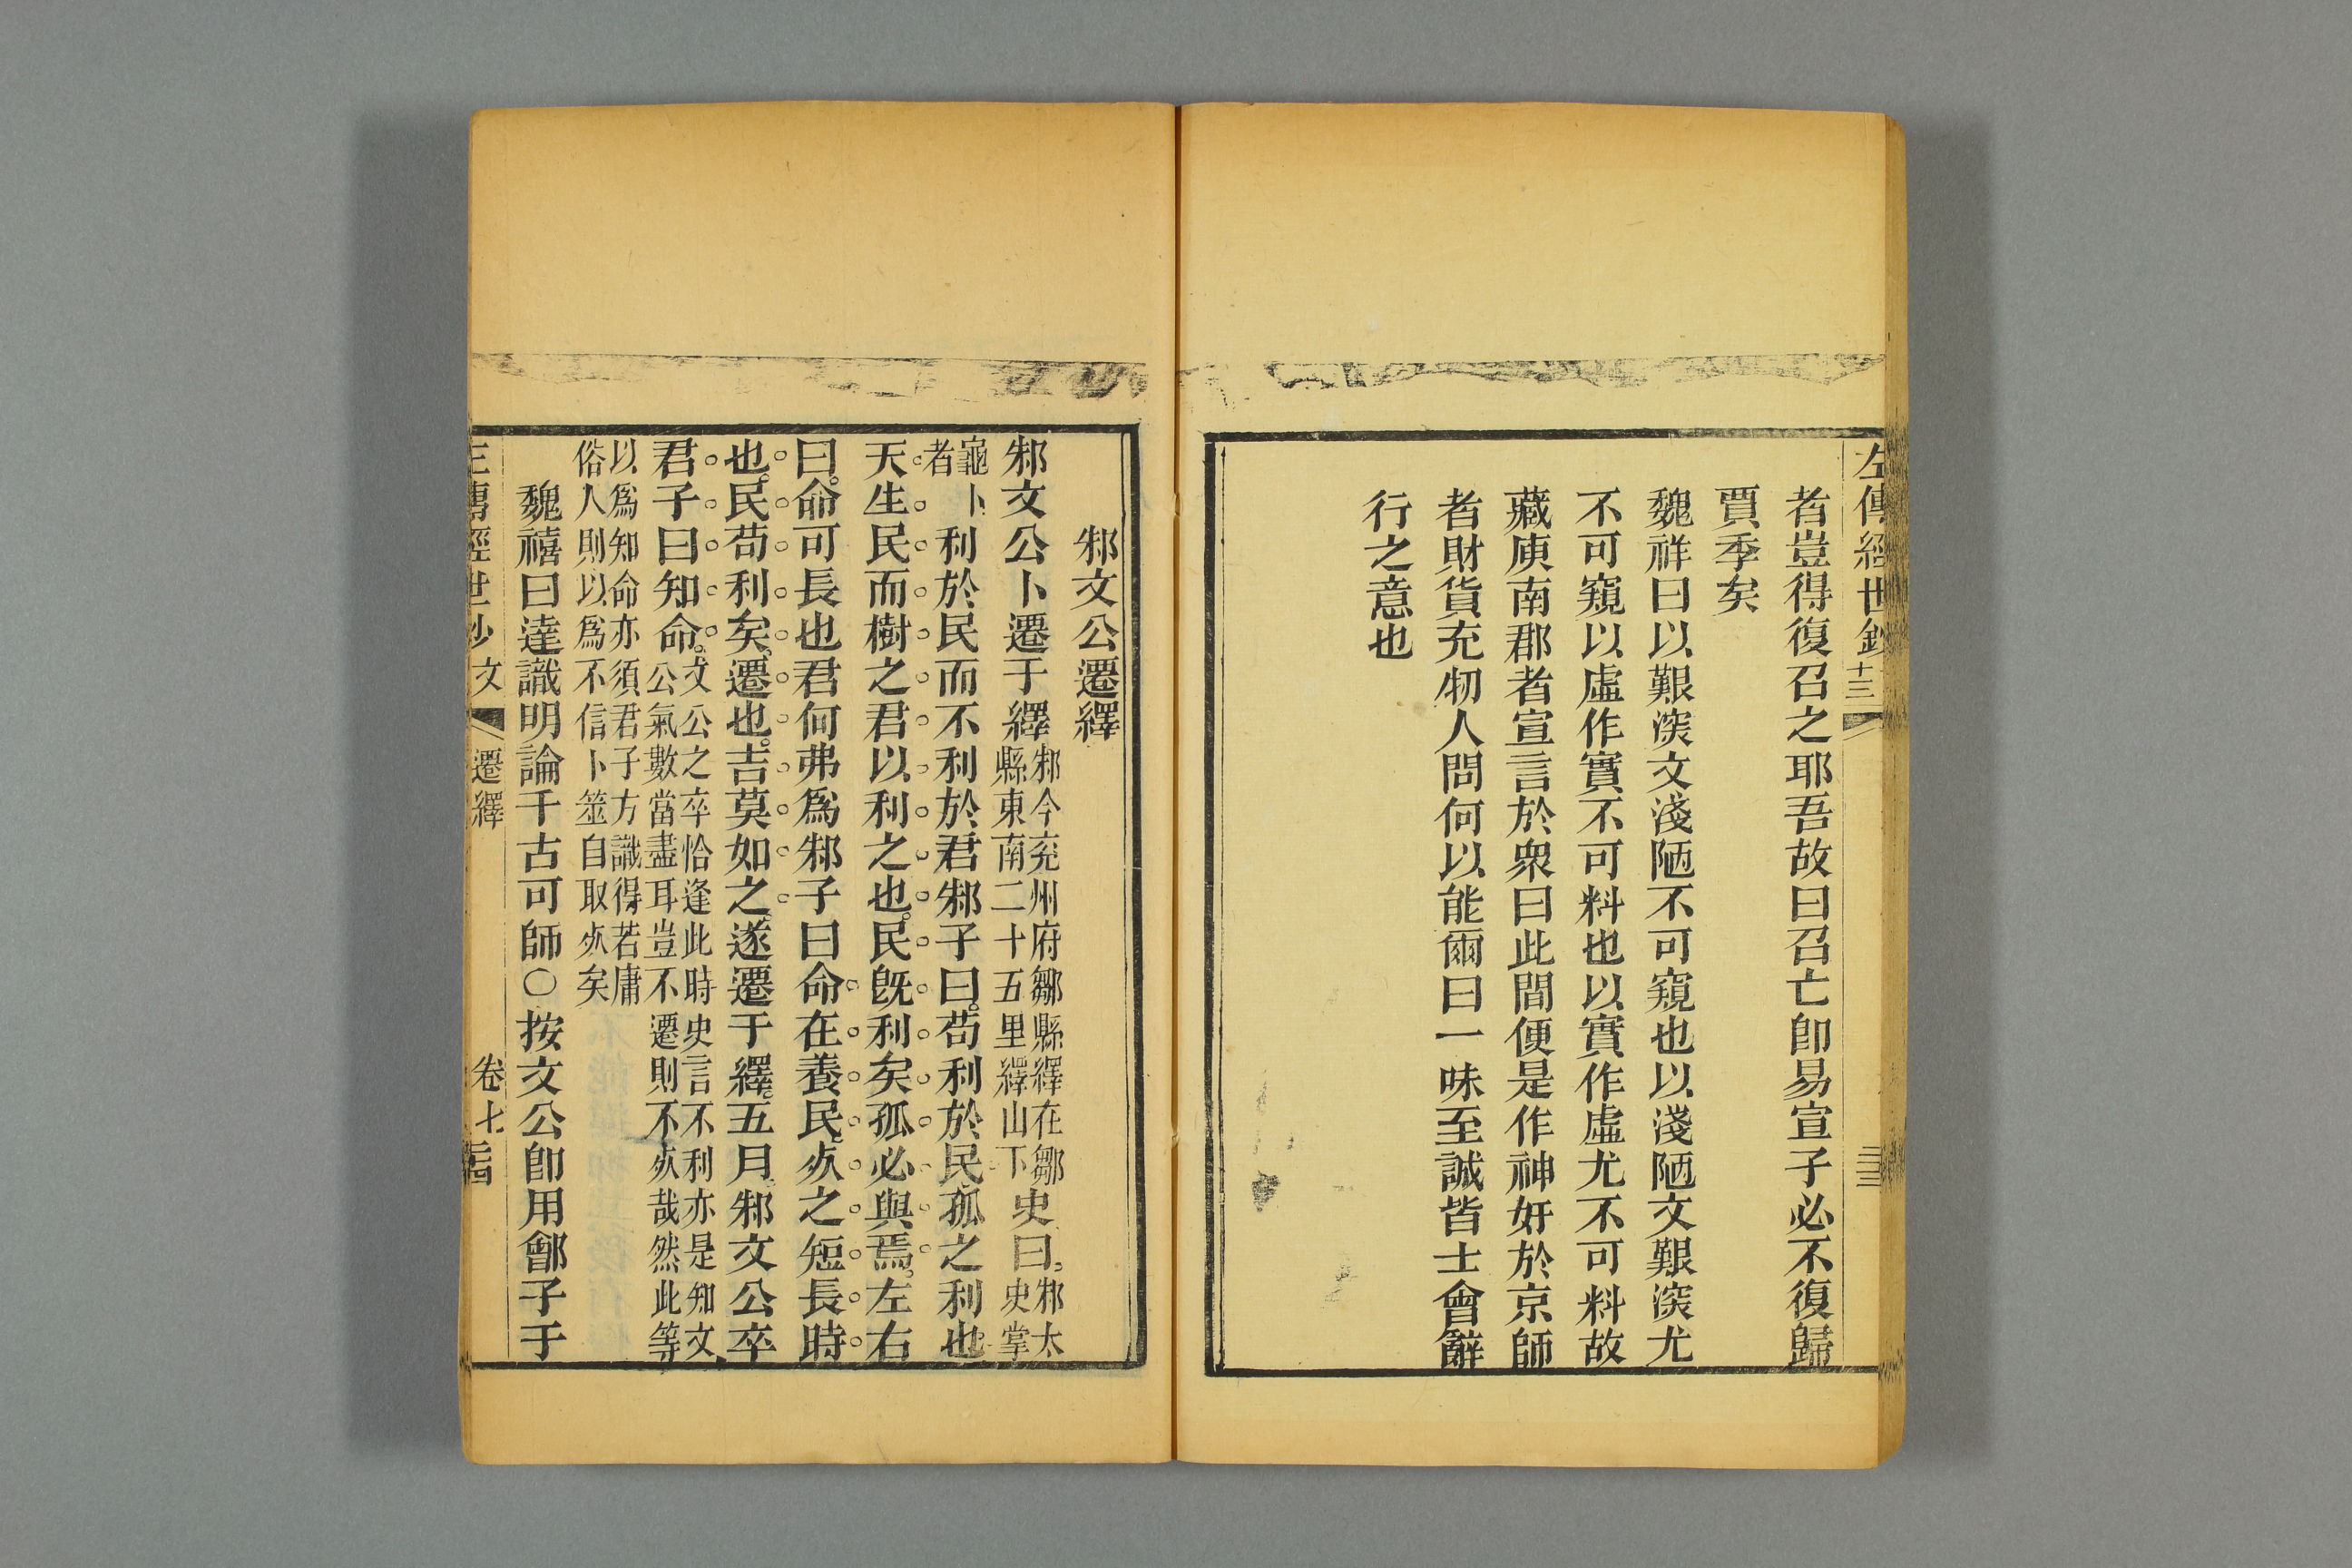 左傳經世鈔 十三
者豈得復召之耶吾故曰召亡卽易宣子必不復歸
賈季矣
魏祥曰以艱深文淺陋不可窺也以淺陋文艱深尤
不可窺以虛作實不可料也以實作虛尤不可料故
藏庾南郡者宣言於衆曰此間便是作神奸於京師
者財貨充牣人問何以能爾曰一味至誠皆士會辭
行之意也
邾文公遷繹
邾文公卜遷于繹
邾今兗州府鄒縣繹在鄒
縣東南二十五里繹山下
史曰
邾太
史掌
龜卜
者
利於民而不利於君邾子曰苟利於民孤之利也
天生民而樹之君以利之也民旣利矣孤必與焉左右
曰命可長也君何弗爲邾子曰命在養民死之短長時
也民苟利矣遷也吉莫如之遂遷于繹五月邾文公卒
君子曰知命
文公之卒恰逢此時史言不利亦是知文
公氣數當盡耳豈不遷則不死哉然此等
以爲知命亦須君子方識得若庸
俗人則以爲不信卜筮自取死矣
魏禧曰達識明論千古可師○按文公卽用鄫子于
左傳經世鈔 文 遷繹 卷七